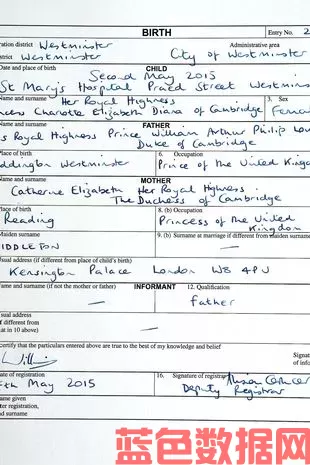 BIRTH
Entry No. 2
ration district Westminster
Administrative area
istrict Westminster
City of Westminster
Date and place of birth
CHILD
Second May 2015
St Mary's Hospital Praed Street Westmins
Name and surname
Her Royal Highness
3. Sex
ncess Charlotte Elizabeth Diana of Cambridge
Female
Name and surname
FATHER
is Royal Highness Prince William Arthur Philip Lou
Duke of Cambridge
Place of birth
6. Occupation
addington Westminster
Prince of the United Kingd
Name and surname
MOTHER
Catherine Elizabeth Her Royal Highness
The Duchess of Cambridge
Place of birth
8. (b) Occupation
Reading
Princess of the United
Kingdom
Maiden surname
9. (b) Surname at marriage if different from maiden surname
IDDLETON
Usual address (if different from place of child's birth)
Kensington Palace London W8 4PU
Name and surname (if not the mother or father)
INFORMANT
12. Qualification
father
Usual address
if different from
at in 10 above)
certify that the particulars entered above are true to the best of my knowledge and belief
Signat
of infor
Willi
ate of registration
16. Signature of registrar
th May 2015
Deputy Registrar
Name given
ter registration,
nd surname
蓝色数据网